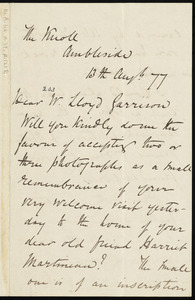 The Knoll
Ambleside
13th Augt 77
Dear W. Lloyd Garrison
Will you kindly do me the
favour of accepting two or
three photographs as a small
remembrance of your
very welcome visit yester-
day to the home of your
dear old friend Harriet
Martineau? The small
one is of an inscription